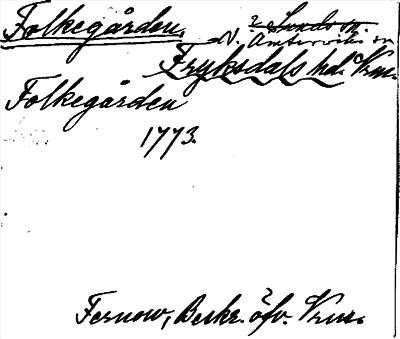 Folkegården. ? Sunds sn.
N. Ämterviks sn
Fryksdals hd. Vrm.
Folkegården
1773.
Fernow, Beskr. öfv. Vrm.